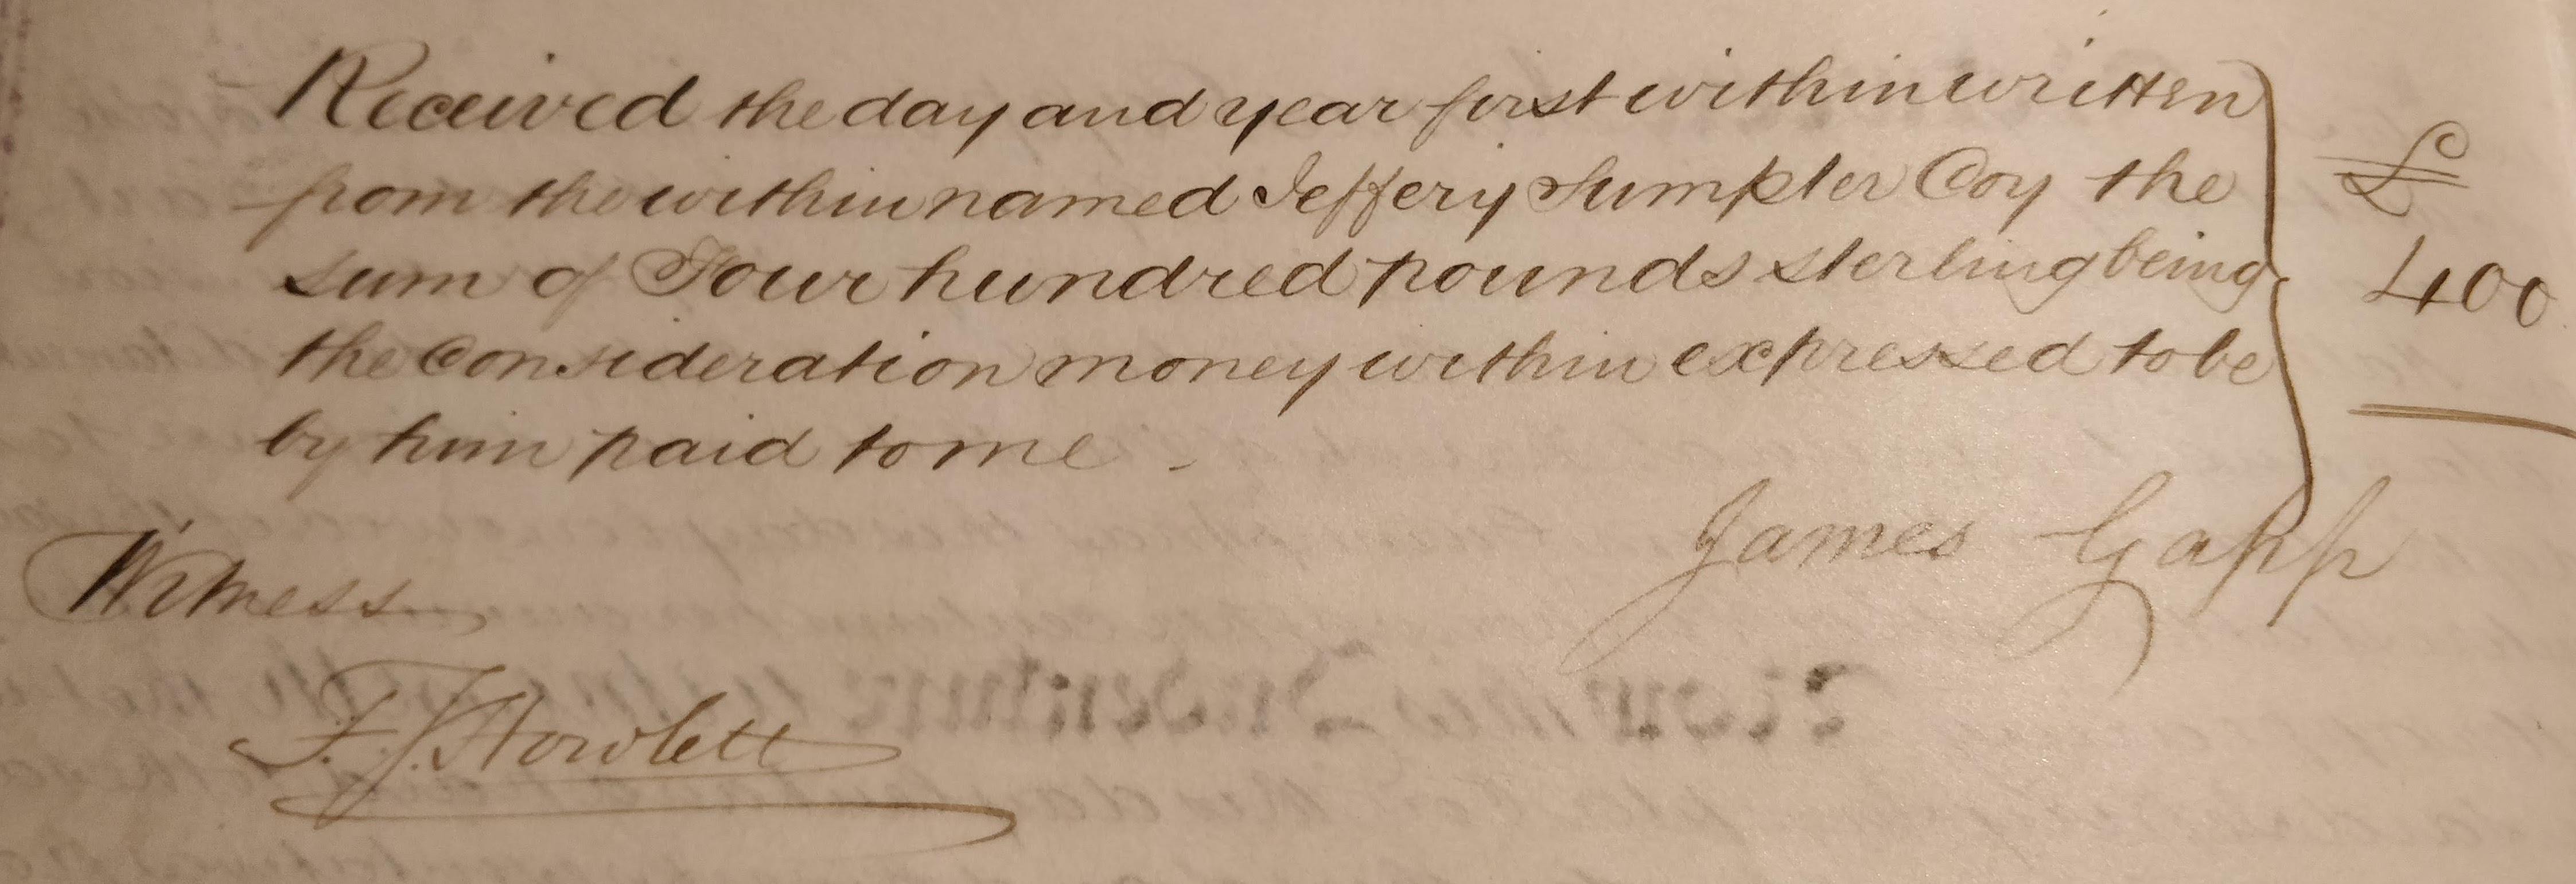 Received the day and year first within written
from the within named Jeffery Sumpter Coy the
sum of Four hundred pounds sterling being
the Consideration money within expressed to be
by him paid to me -
£
400
James Gapp
Witness
F. J. Howlett